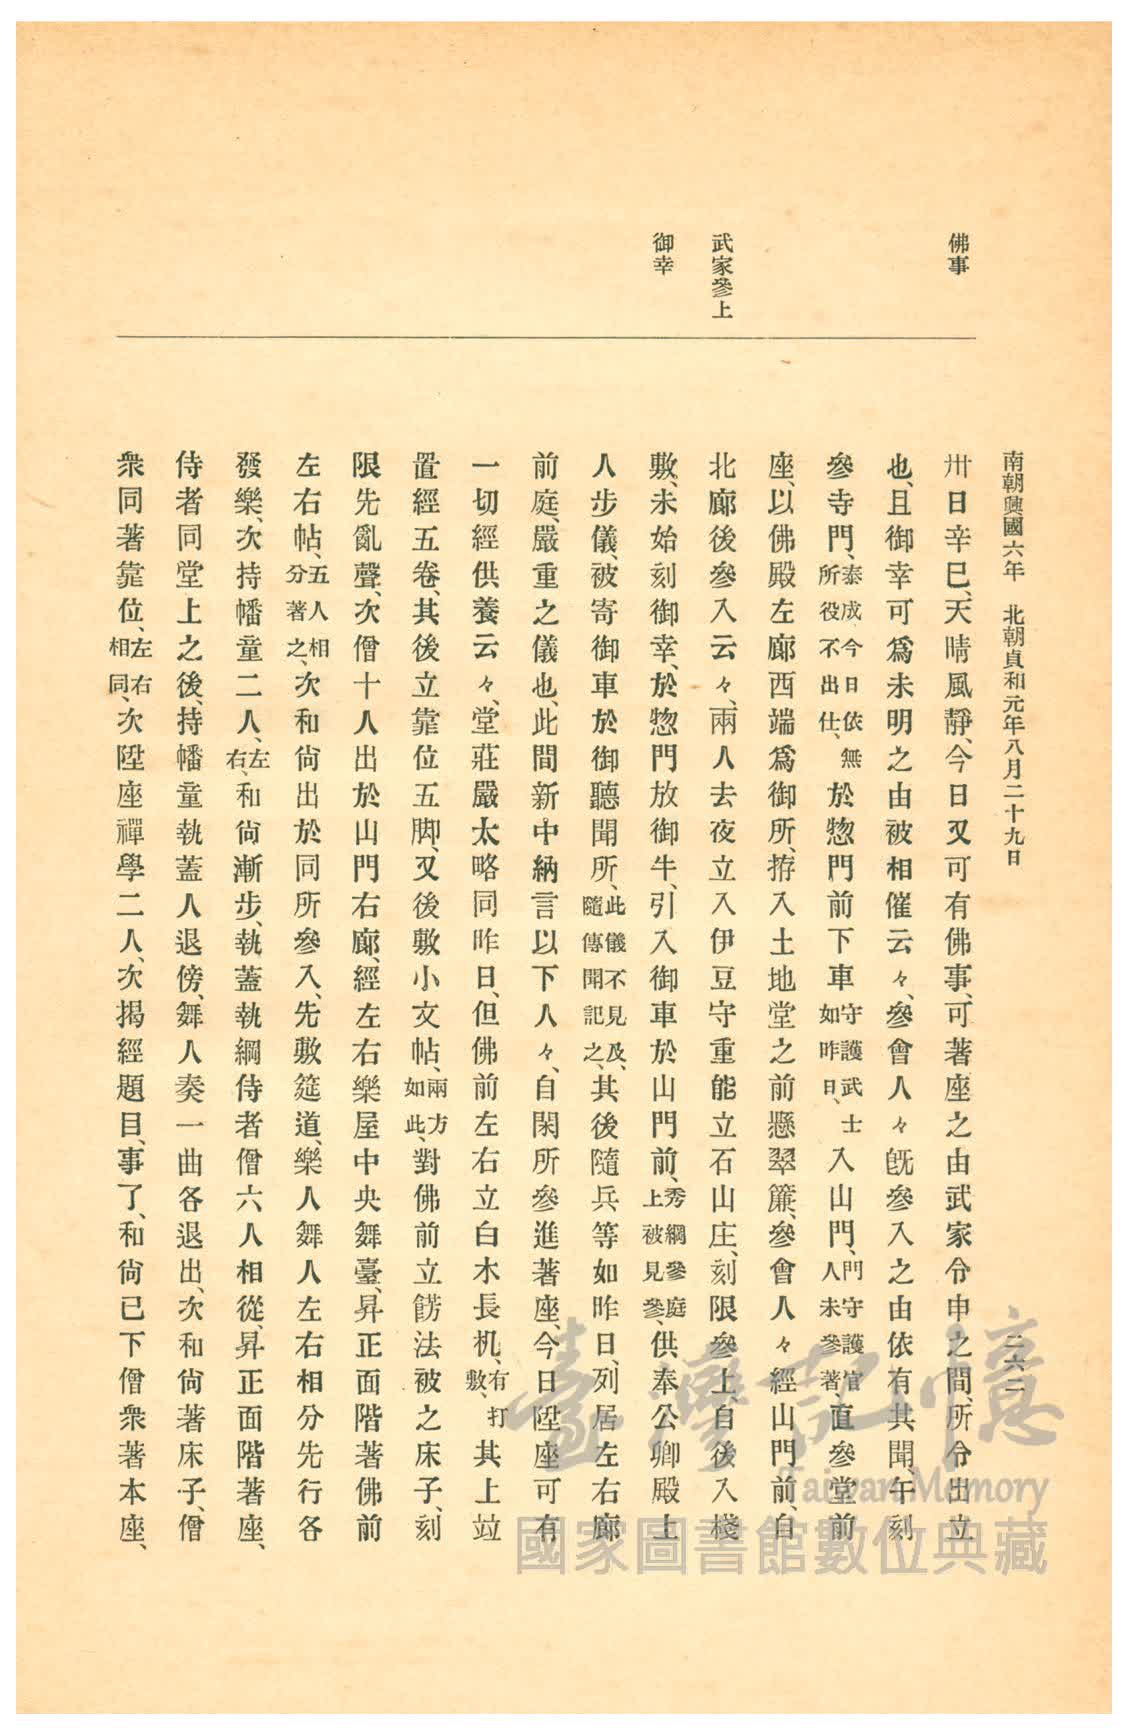 南朝興國六年　北朝貞和元年八月二十九日　二六二
佛事
武家參上
御幸
卅日辛巳、天晴風靜、今日又可有佛事、可著座之由武家令申之間、所令出立
也、且御幸可爲未明之由被相催云々、參會人々旣參入之由依有其聞、午刻
參寺門、泰成、今日依無所役不出仕、於惣門前下車守護武士如昨日、入山門、門守護官人未參著、直參堂前
座、以佛殿左廊西端爲御所、拵入土地堂之前懸翠簾、參會人々經山門前、自
北廊後參入云々、兩人去夜立入伊豆守重能立石山庄、刻限參上、自後入棧
敷、未始刻御幸、於惣門放御牛、引入御車於山門前、秀綱參庭上被見參、供奉公卿殿上
人步儀、被寄御車於御聽聞所、此儀不見及、隨傳聞記之、其後隨兵等如昨日、列居左右廊
前庭、嚴重之儀也、此間新中納言以下人々、自閑所參進著座、今日陞座可有
一切經供養云々、堂莊嚴太略同昨日、但佛前左右立白木長机、有打敷、其上竝
置經五卷、其後立靠位五脚、又後敷小文帖、兩方如此、對佛前立餝法被之床子、刻
限先亂聲、次僧十人出於山門右廊、經左右樂屋中央舞臺、昇正面階著佛前
左右帖、五人相分著之、次和尙出於同所參入、先敷筵道、樂人舞人左右相分先行各
發樂、次持幡童二人、左右、和尙漸步、執蓋執綱侍者僧六人相從、昇正面階著座、
侍者同堂上之後、持幡童執蓋人退傍、舞人奏一曲各退出、次和尙著床子、僧
衆同著靠位、左右相同、次陞座禪學二人、次揭經題目、事了、和尙已下僧衆著本座、
臺灣記憶
Taiwan Memory
國家圖書館數位典藏